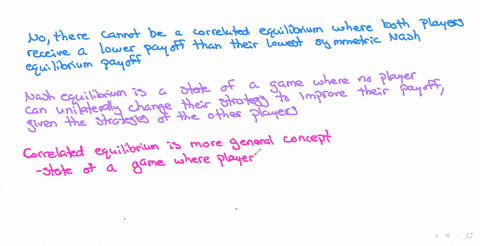 No, there cannot be a correlated equilibrium where both players
receive a lower payoff than their lowest symmetric Nash
equilibrium payoff
Nash equilibrium is a state of a game where no player
can unilaterally change their strategy to improve their payoff,
given the strategies of the other players
Correlated equilibrium is more general concept
-state of a game where player